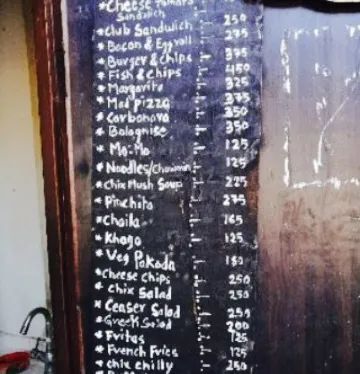 *Cheese Tomato
Sandwich 250
*Club Sandwich 275
*Bacon & Egg roll
*Burger & Chips 375
*Fish & Chips 450
*Margarita 325
*Mad Pizza 375
*Carbonara 350
*Bolognise 350
*Mo:Mo 125
*Noodles/Chowmin 125
*Chix Mush Soup 225
*Pinchito 275
*Choila 165
*Khaja 125
*Veg Pakoda 150
*Cheese Chips 250
*Chix Salad 250
*Ceaser Salad 250
*Greek Salad 200
*Fritas 125
*French Fries 125
*Chix chilly 250